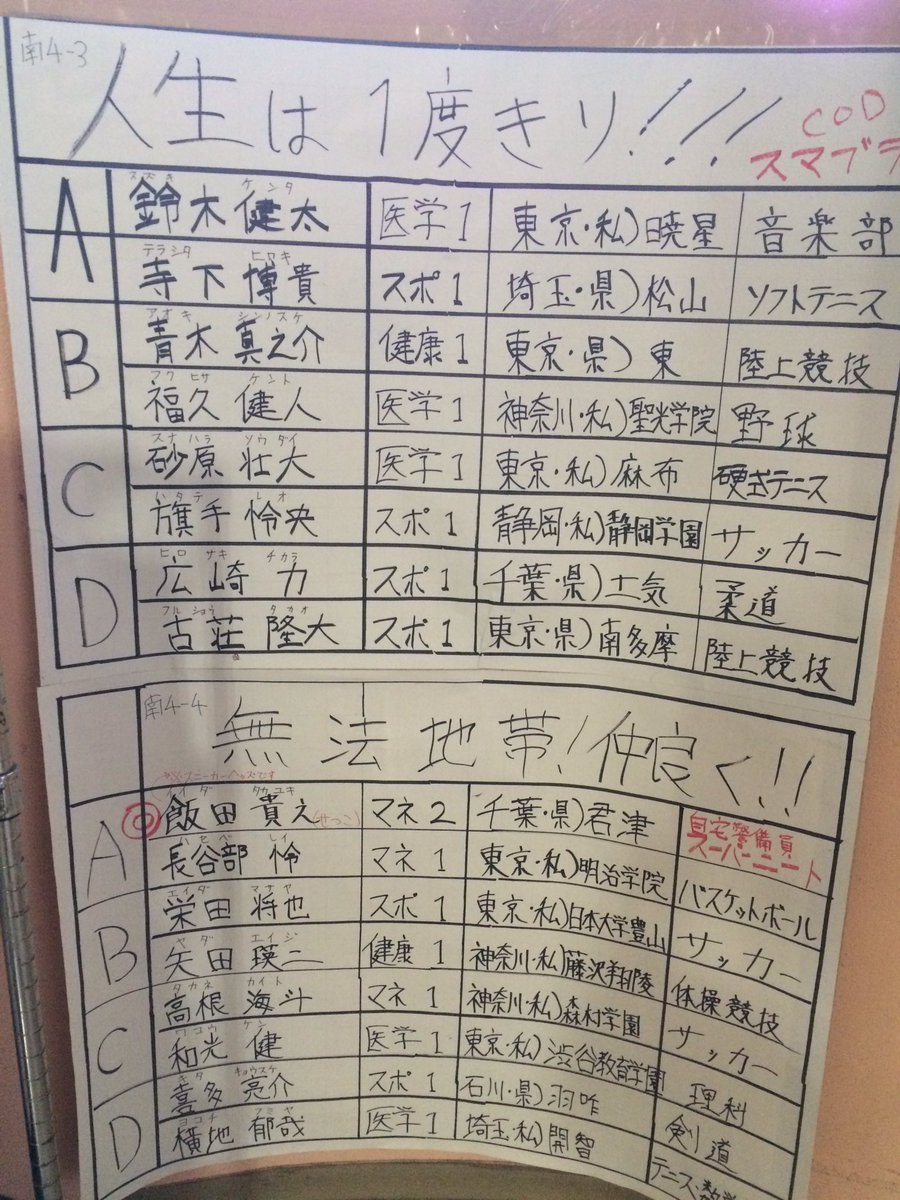 南4-3
人生は1度きり!!!
COD
スマブラ
A
スズキ ケンタ
鈴木 健太 医学1 東京・私)暁星 音楽部
テラシタ ヒロキ
寺下 博貴 スポ1 埼玉・県)松山 ソフトテニス
B
アオキ シンノスケ
青木 真之介 健康1 東京・県)東 陸上競技
フクヒサ ケント
福久 健人 医学1 神奈川・私)聖光学院 野球
C
スナハラ ソウダイ
砂原 壮大 医学1 東京・私)麻布 硬式テニス
ハタテ レオ
旗手 怜央 スポ1 静岡・私)静岡学園 サッカー
D
ヒロサキ チカラ
広崎 力 スポ1 千葉・県)土気 柔道
フルショウ タカオ
古荘 隆大 スポ1 東京・県)南多摩 陸上競技
南4-4
無法地帯!仲良く!!
※スニーカーヘッズです
A
イイダ タカユキ
◎飯田 貴之(せっこ) マネ2 千葉・県)君津 自宅警備員
スーパーニート
ハセベ レイ
長谷部 怜 マネ1 東京・私)明治学院 バスケットボール
B
エイダ マナヤ
栄田 将也 スポ1 東京・私)日本大学豊山 サッカー
ヤダ エイジ
矢田 瑛二 健康1 神奈川・私)藤沢翔陵 体操競技
C
タカネ カイト
高根 海斗 マネ1 神奈川・私)森村学園 サッカー
ワコウ ケン
和光 健 医学1 東京・私)渋谷教育学園 理科
D
キタ キョウスケ
喜多 亮介 スポ1 石川・県)羽咋 剣道
ヨコチ フミヤ
横地 郁哉 医学1 埼玉・私)開智 テニス・数学